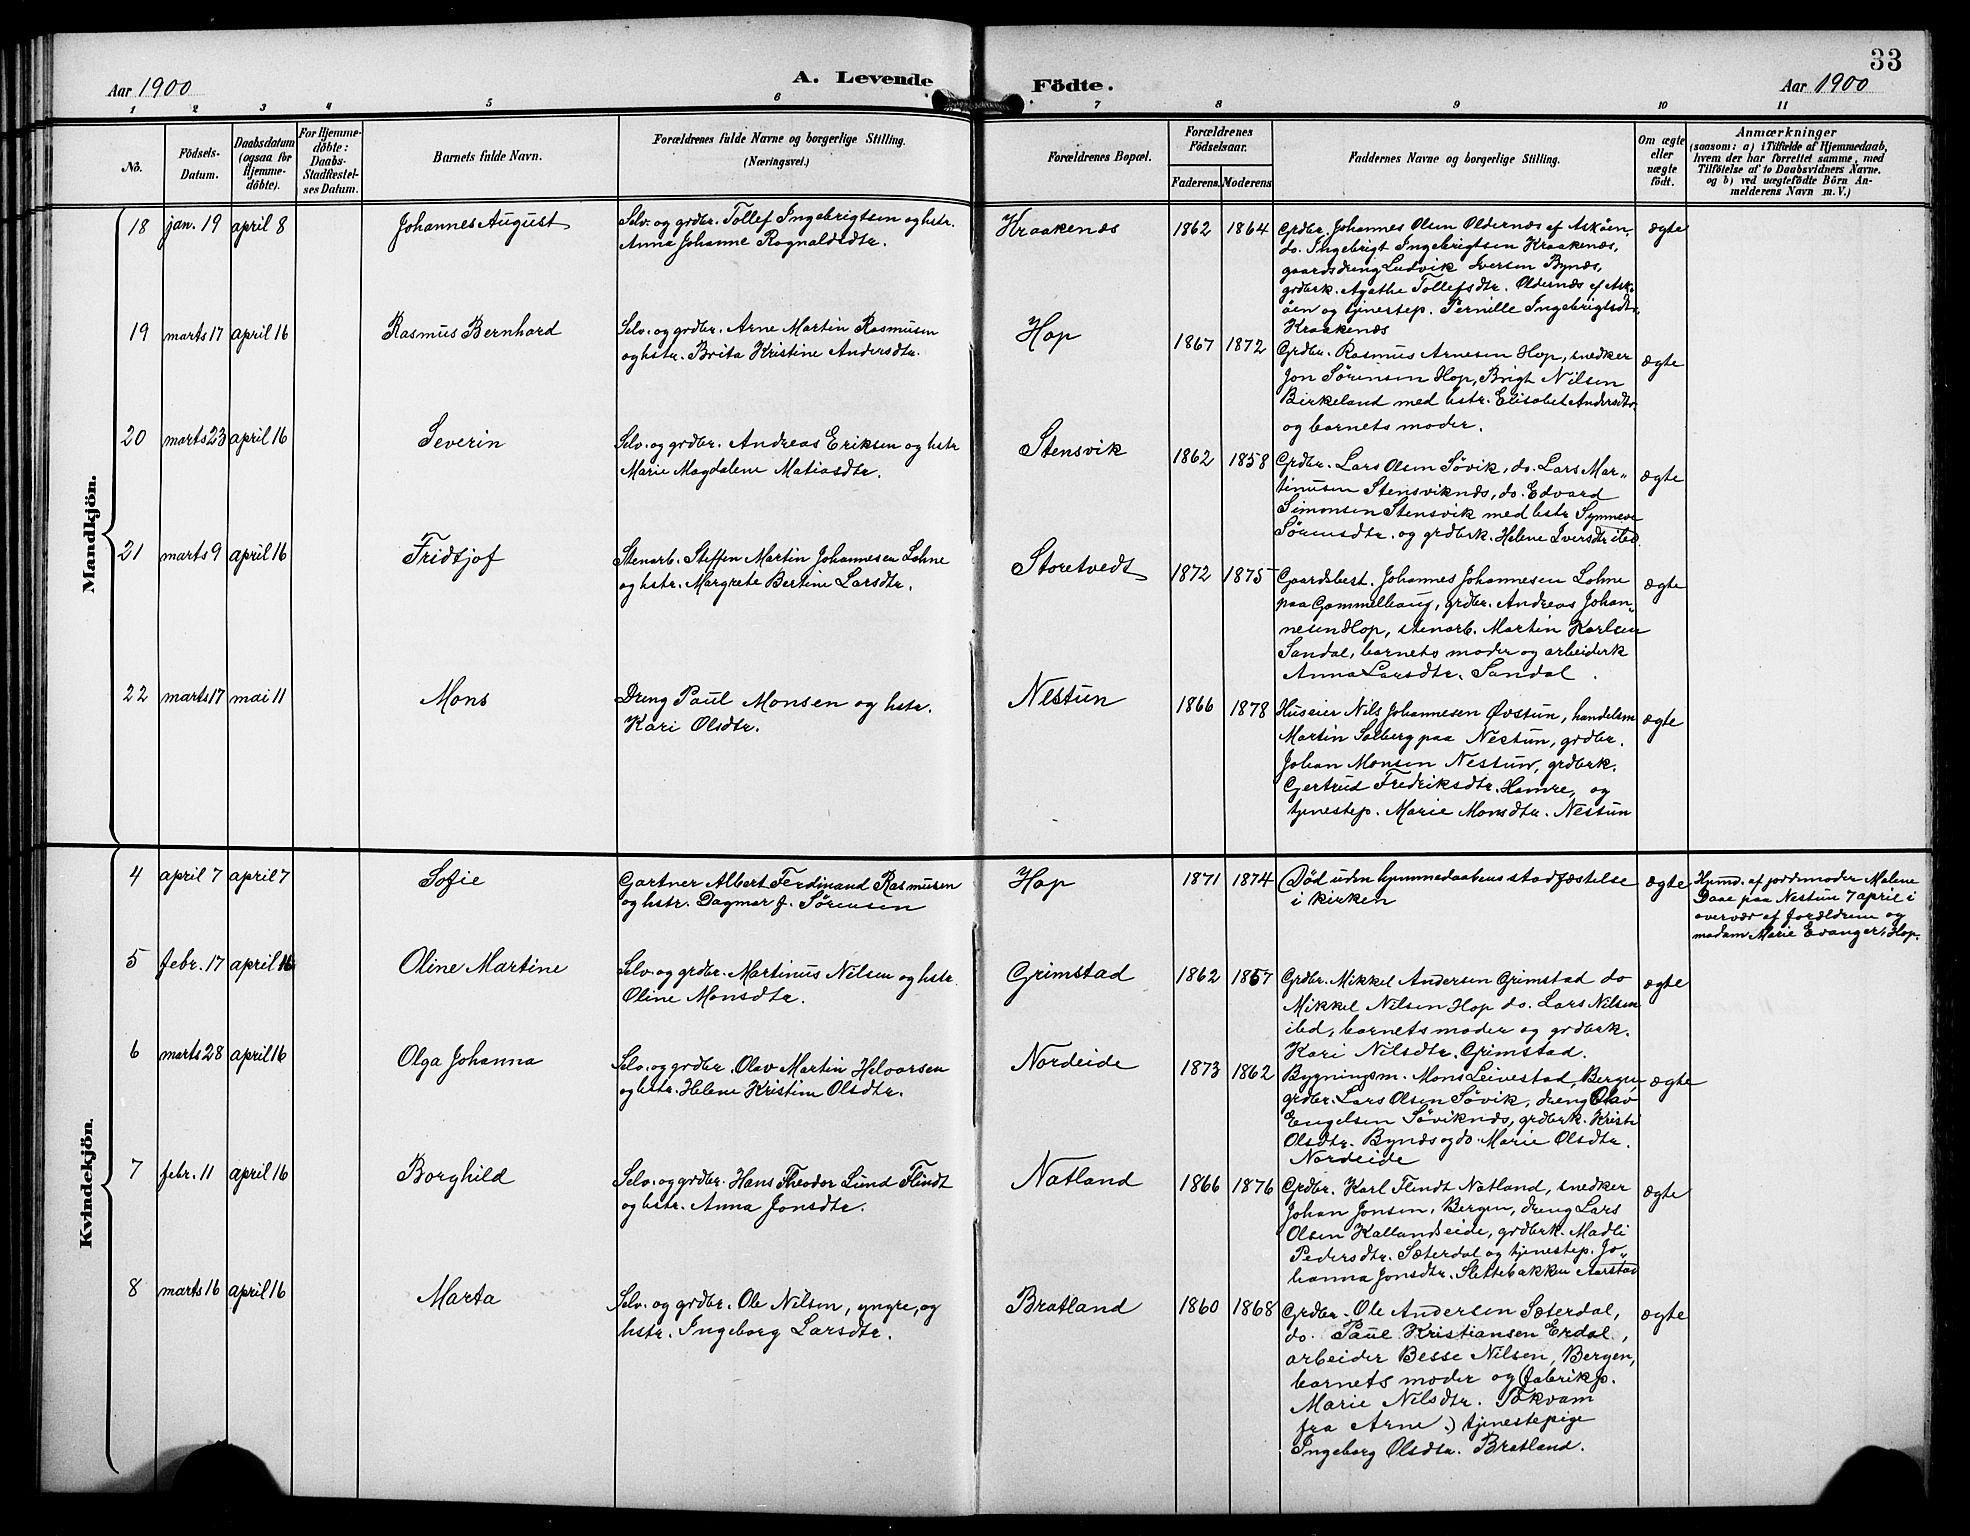 33
Aar 1900
A. Levende
Födte.
Aar 1900
1 2 3 4 5 6 7 8 9 10 11
No.
Födsels-
Datum.
Daabsdatum
(ogsaa for
Hjemme-
döbte).
For Hjemme-
döbte:
Daabs-
Stadfæstel-
ses Datum.
Barnets fulde Navn.
Forældrenes fulde Navne og borgerlige Stilling.
(Næringsvei.)
Forældrenes Bopæl.
Forældrenes
Födselsaar.
Faderens. Moderens
Faddernes Navne og borgerlige Stilling.
Om ægte
eller
uægte
födt.
Anmærkninger
(saasom: a) i Tilfælde af Hjemmedaab,
hvem der har forrettet samme, med
Tilföielse af to Daabsvidners Navne.
og b) ved uægtefödte Börn An-
melderens Navn m. V.)
Mandkjön.
18 jan. 19 april 8
Johannes August
Selv. og grdbr. Tollef Ingebrigtsen og hstr.
Anna Johanne Rognaldsdtr.
Kraakenæs
1862 1864
Grdbr. Johannes Olsen Oldernæs af Askøen,
do. Ingebrigt Ingebrigtsen Kraakenæs,
gaardsdreng Ludvik Iversen Bynæs,
grdbrk. Agathe Tollefsdtr. Oldernæs af Ask-
øen og tjenestep. Pernille Ingebrigtsdtr.
Kraakenæs
ægte
19 marts 17 april 16
Rasmus Bernhard
Selv. og grdbr. Arne Martin Rasmusen
og hstr. Brita Kristine Andersdtr.
Hop
1867 1872
Grdbr. Rasmus Arnesen Hop, snedker
Jon Sørensen Hop, Brigt Nilsen
Birkeland med hstr. Elisabet Andersdtr.
og barnets moder.
ægte
20 marts 23 april 16
Severin
Selv. og grdbr. Andreas Eriksen og hstr
Marie Magdalene Matiasdtr.
Stensvik
1862 1858
Grdbr. Lars Olsen Søvik, do. Lars Mar-
tinusen Stensviknæs, do. Edvard
Simonsen Stensvik med hstr Synneve
Sørensdtr. og grdbrk. Helene Iversdtr ibd.
ægte
21 marts 9 april 16
Fridtjof
Stenarb. Steffen Martin Johannesen Lohne
og hstr. Margrete Bertine Larsdtr.
Storetvedt
1872 1875
Gaardsbest. Johannes Johannesen Lohne
paa Gammelhaug, grdbr. Andreas Johan-
nesen Hop, stenarb. Martin Karlsen
Sandal, barnets moder og arbeiderk
Anna Larsdtr. Sandal.
ægte
22 marts 17 mai 11
Mons
Dreng Paul Monsen og hstr.
Kari Olsdtr.
Nestun
1866 1878
Huseier Nils Johannesen Øvstun, handelsm
Martin Solberg paa Nestun, grdbr.
Johan Monsen Nestun, grdbrk.
Gertrud Fredriksdtr. Hamre, og
tjenestep. Marie Monsdtr. Nestun
ægte
Kvindekjön.
4 april 7 april 7
Sofie
Gartner Albert Ferdinand Rasmusen
og hstr. Dagmar J. Sørensen
Hop
1871 1874
Død uden hjemmedaabens stadfæstelse
i kirken
ægte
Hjmd. af jordemoder Malene
Daae paa Nestun 7 april i
overvær af forældrene og
madam Marie Evanger, Hop.
5 febr. 17 april 16
Oline Martine
Selv. og grdbr. Martinus Nilsen og hstr.
Oline Monsdtr.
Grimstad
1862 1857
Grdbr. Mikkel Andersen Grimstad do
Mikkel Nilsen Hop do. Lars Nilsen
ibd, barnets moder og grdbrk.
Kari Nilsdtr. Grimstad.
ægte
6 marts 28 april 16
Olga Johanna
Selv. og grdbr. Olav Martin Helvorsen
og hstr. Helene Kristine Olsdtr.
Nordeide
1873 1862
Bygningsm. Mons Leivestad, Bergen
grdbr. Lars Olsen Søvik, dreng Olav
Engelsen Søviknæs, grdbrk. Kristi
Olsdtr. Bynæs og do. Marie Olsdtr.
Nordeide
ægte
7 febr. 11 april 16
Borghild
Selv. og grdbr. Hans Theodor Lund Flindt
og hstr. Anna Jonsdtr.
Natland
1866 1876
Grdbr. Karl Flindt Natland, snedker
Johan Jonsen, Bergen, dreng Lars
Olsen Kallandseide, grdbrk. Madli
Pedersdtr. Sæterdal og tjenestep. Jo-
hanna Jonsdtr. Slettebakken Aarstad
ægte
8 marts 16 april 16
Marta
Selv. og grdbr. Ole Nilsen, yngre, og
hstr. Ingeborg Larsdtr.
Bratland
1860 1868
Grdbr. Ole Andersen Sæterdal,
do. Paul Kristiansen Erdal,
arbeider Besse Nilsen, Bergen,
barnets moder og (fabrikp.
Marie Nilsdtr. Tokvam
fra Arne.) tjenestepige
Ingeborg Olsdtr. Bratland.
ægte